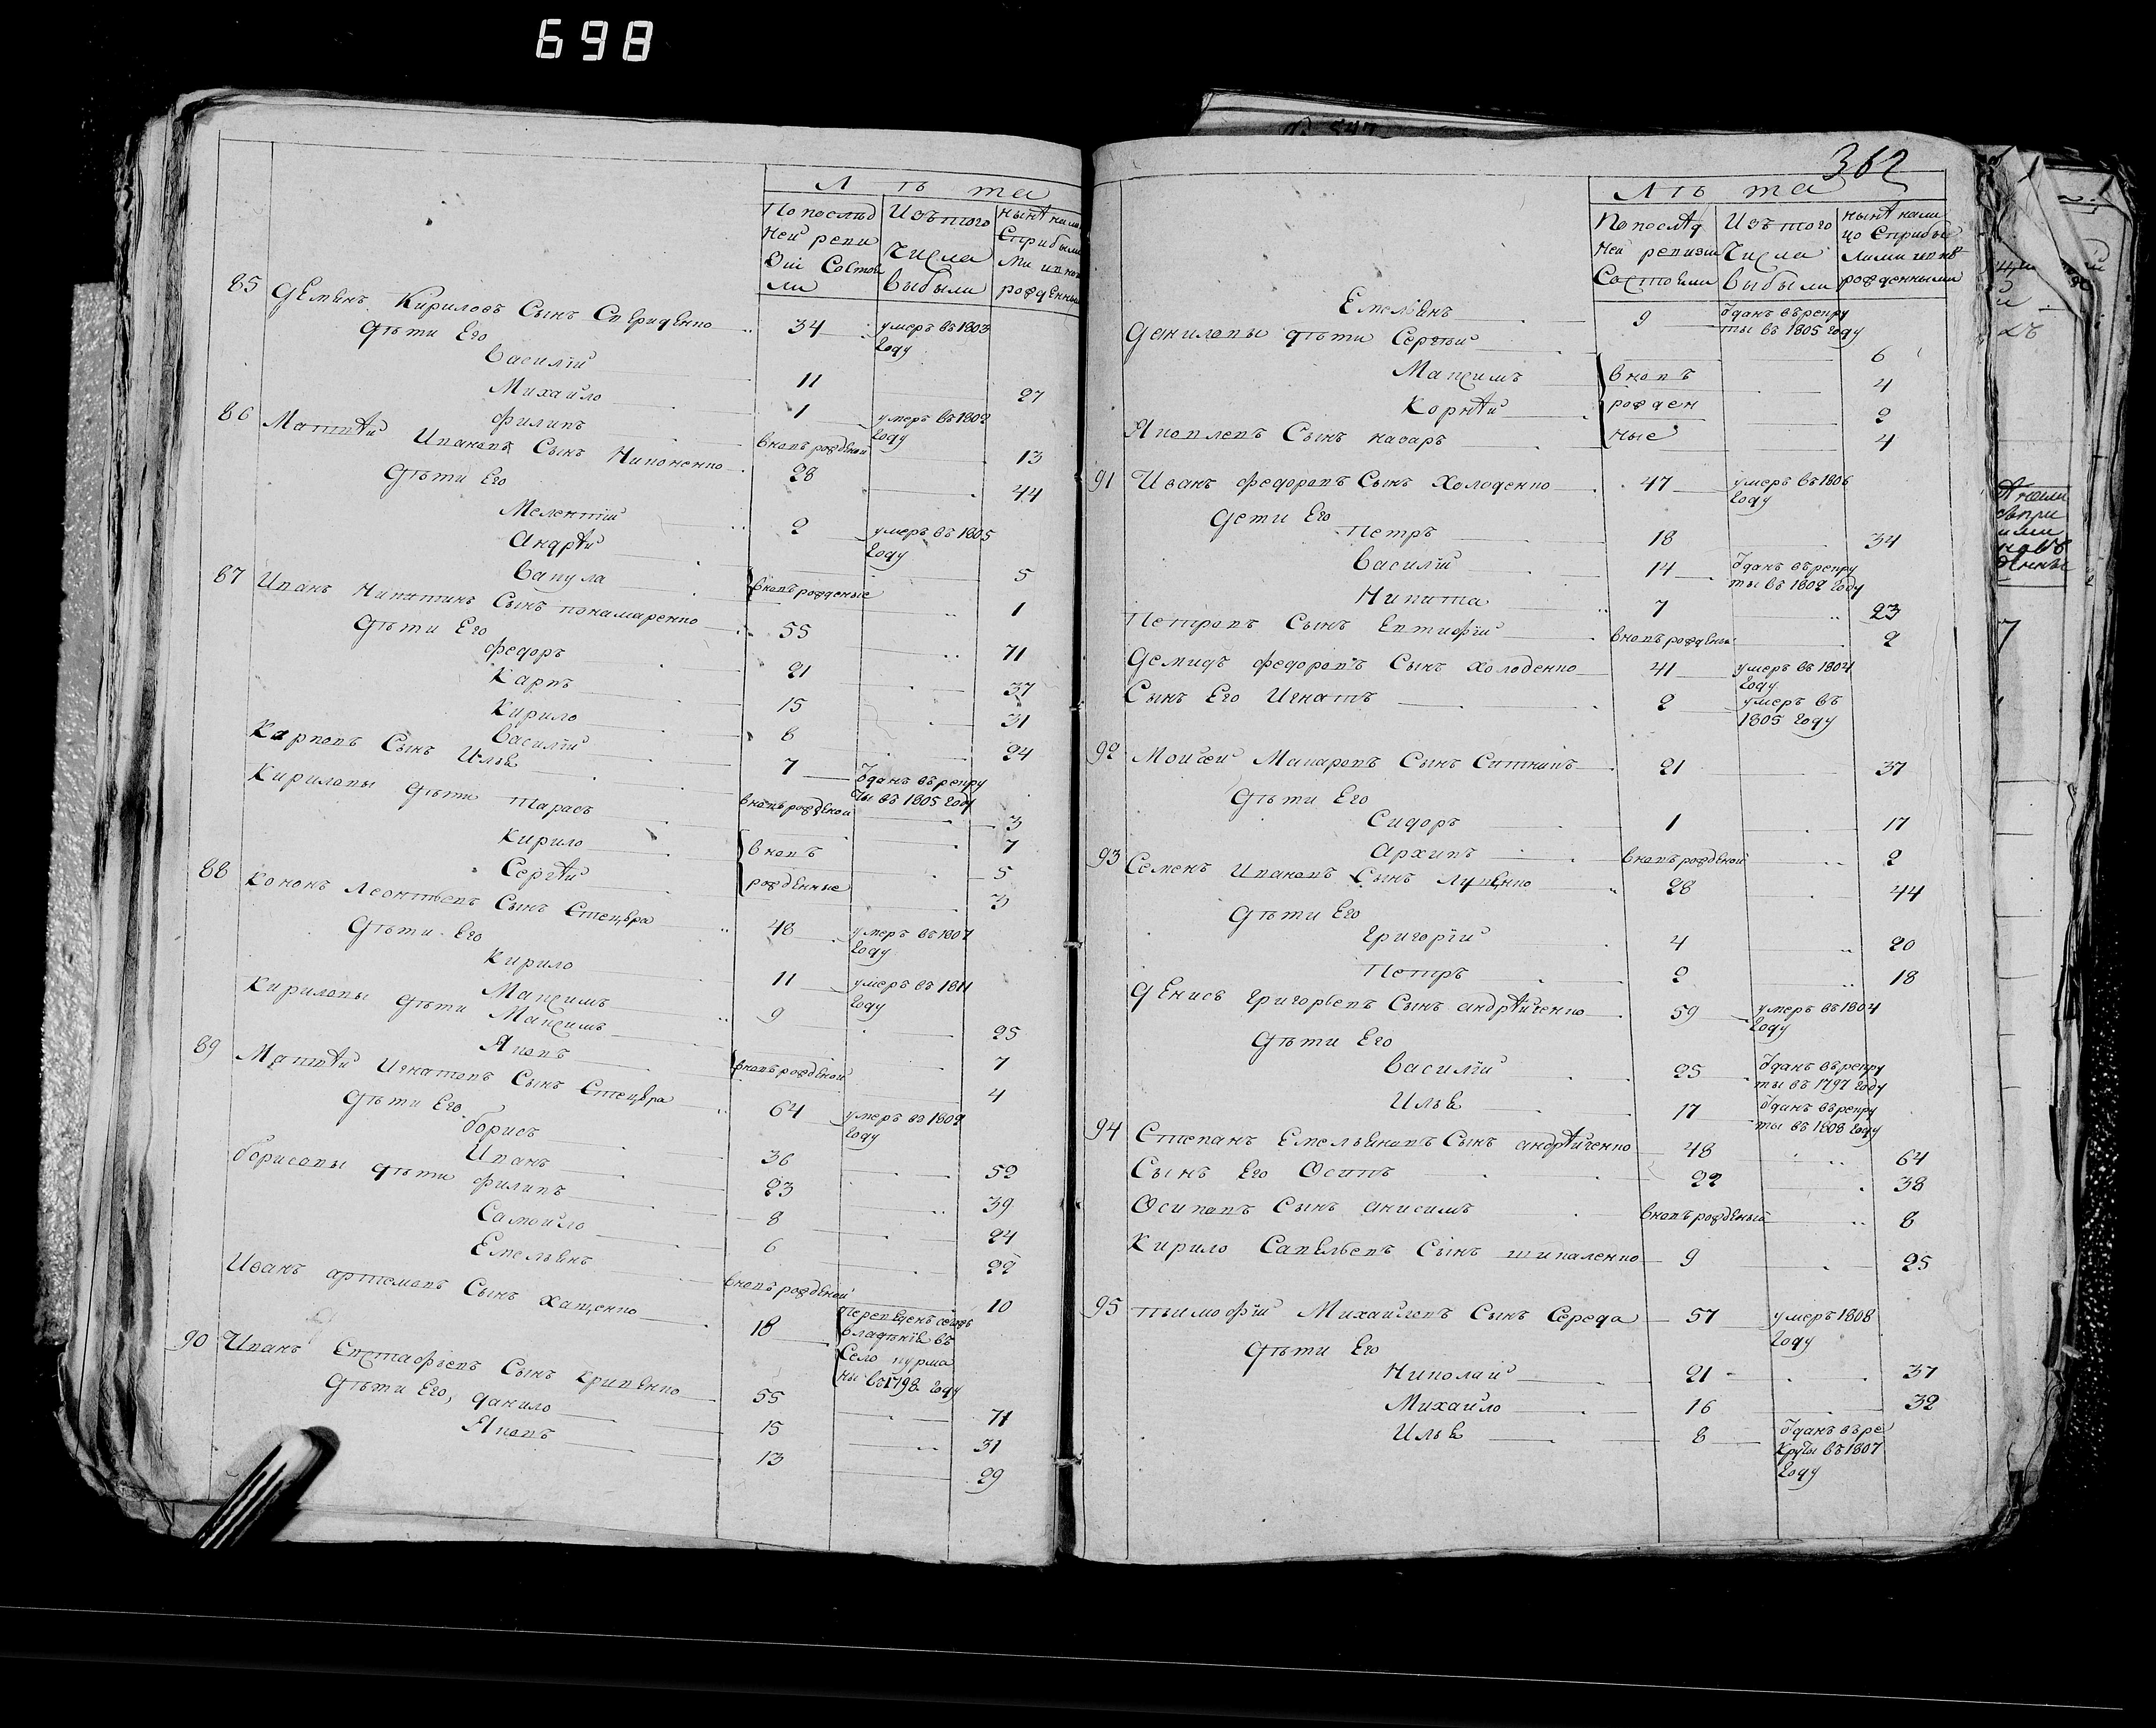 698
Лѣта
По послѣд Изъ того нынѣ нали
ней реви числа
зіи состоя выбыли рожденны
ли
85 Демьянъ Кириловъ Сынъ Свериденко 34 умеръ въ 1803
году
Дѣти Его
Василій 11 27
Михайло 1 умеръ въ 1802
году
Филипъ вновь рожденой 13
86 Матвѣй Ивановъ Сынъ Никоненко 28 44
Дѣти Его
Мелентій 2 умеръ въ 1805
году
Андрѣй 5
Вакула вновь рожденые 1
87 Иванъ Никитинъ Сынъ понамаренко 55 71
Дѣти Его
Федоръ 21 37
Карпъ 15 31
Кирило 8 24
Василій 7 Ѿданъ въ рекру
ты въ 1805 году
Карповъ Сынъ Илья вновь рожденой 3
Кириловы дѣти Тарасъ 7
Кирило вновь 5
Сергѣй рожденные 3
88 Кононъ Леонтьевъ Сынъ Стецура 48 умеръ въ 1807
году
Дѣти Его
Кирило 11 умеръ въ 1811
году
Максимъ 9 25
Кириловы дѣти Максимъ 7
Яковъ вновь рожденой 4
89 Матвѣй Игнатовъ Сынъ Стецура 64 умеръ въ 1802
году
Дѣти Его
Борисъ 36 52
Иванъ 23 39
Борисовы дѣти Филипъ 8 24
Самойло 6 22
Емельянъ вновь рожденой 10
Иванъ артемовъ Сынъ Хащенко 18
владѣнія въ
Село курма
ны въ 1798 году
90 Иванъ Евстафьевъ Сынъ Кривенко 55 71
Дѣти Его, данило 15 31
Яковъ 13 29
362
Лѣта
По послѣд Изъ того нынѣ нали
ней ревизіи числа цо Сприбы
Состояли выбыли лыми и вновь
рожденными
Емельянъ 9 Ѿданъ въ рекру
ты въ 1805 году
Даниловы дѣти Сергѣй 6
Максимъ вновь 4
Корнѣй рожден 2
Яковлевъ Сынъ назаръ ные 4
91 Иванъ Федоровъ Сынъ Холоденко 47 умеръ въ 1806
году
Дети Его
Петръ 18 34
Василій 14 Ѿданъ въ рекру
ты въ 1802 году
Никита 7 23
Петровъ Сынъ Евтифій вновь рожденны 2
Демидъ Федоровъ Сынъ Холоденко 41 умеръ въ 1804
году
Сынъ Его Игнатъ 2 умеръ въ
1805 году
92 Моисей Макаровъ Сынъ Ситникъ 21 37
Дѣти Его
Сидоръ 1 17
Архипъ вновь рожденой 2
93 Семенъ Ивановъ Сынъ Луценко 28 44
Дѣти Его
Григорій 4 20
Петръ 2 18
Денисъ Григорьевъ Сынъ андрѣйченко 59 умеръ въ 1804
году
Дѣти Его
Василій 25 Ѿданъ въ рекру
ты въ 1797 году
Илья 17 Ѿданъ въ рекру
ты въ 1808 году
94 Степанъ Емельяновъ Сынъ андрѣйченко 48 64
Сынъ Его Осипъ 22 38
Осиповъ Сынъ анисимъ вновь рожденый 8
Кирило Савельевъ Сынъ шикаленко 9 25
95 Тимофій Михайлевъ Сынъ Середа 57 умеръ 1808
году
Дѣти Его
Николай 21 37
Михайло 16 32
Илья 8 Ѿданъ въ ре
круты въ 1807
году